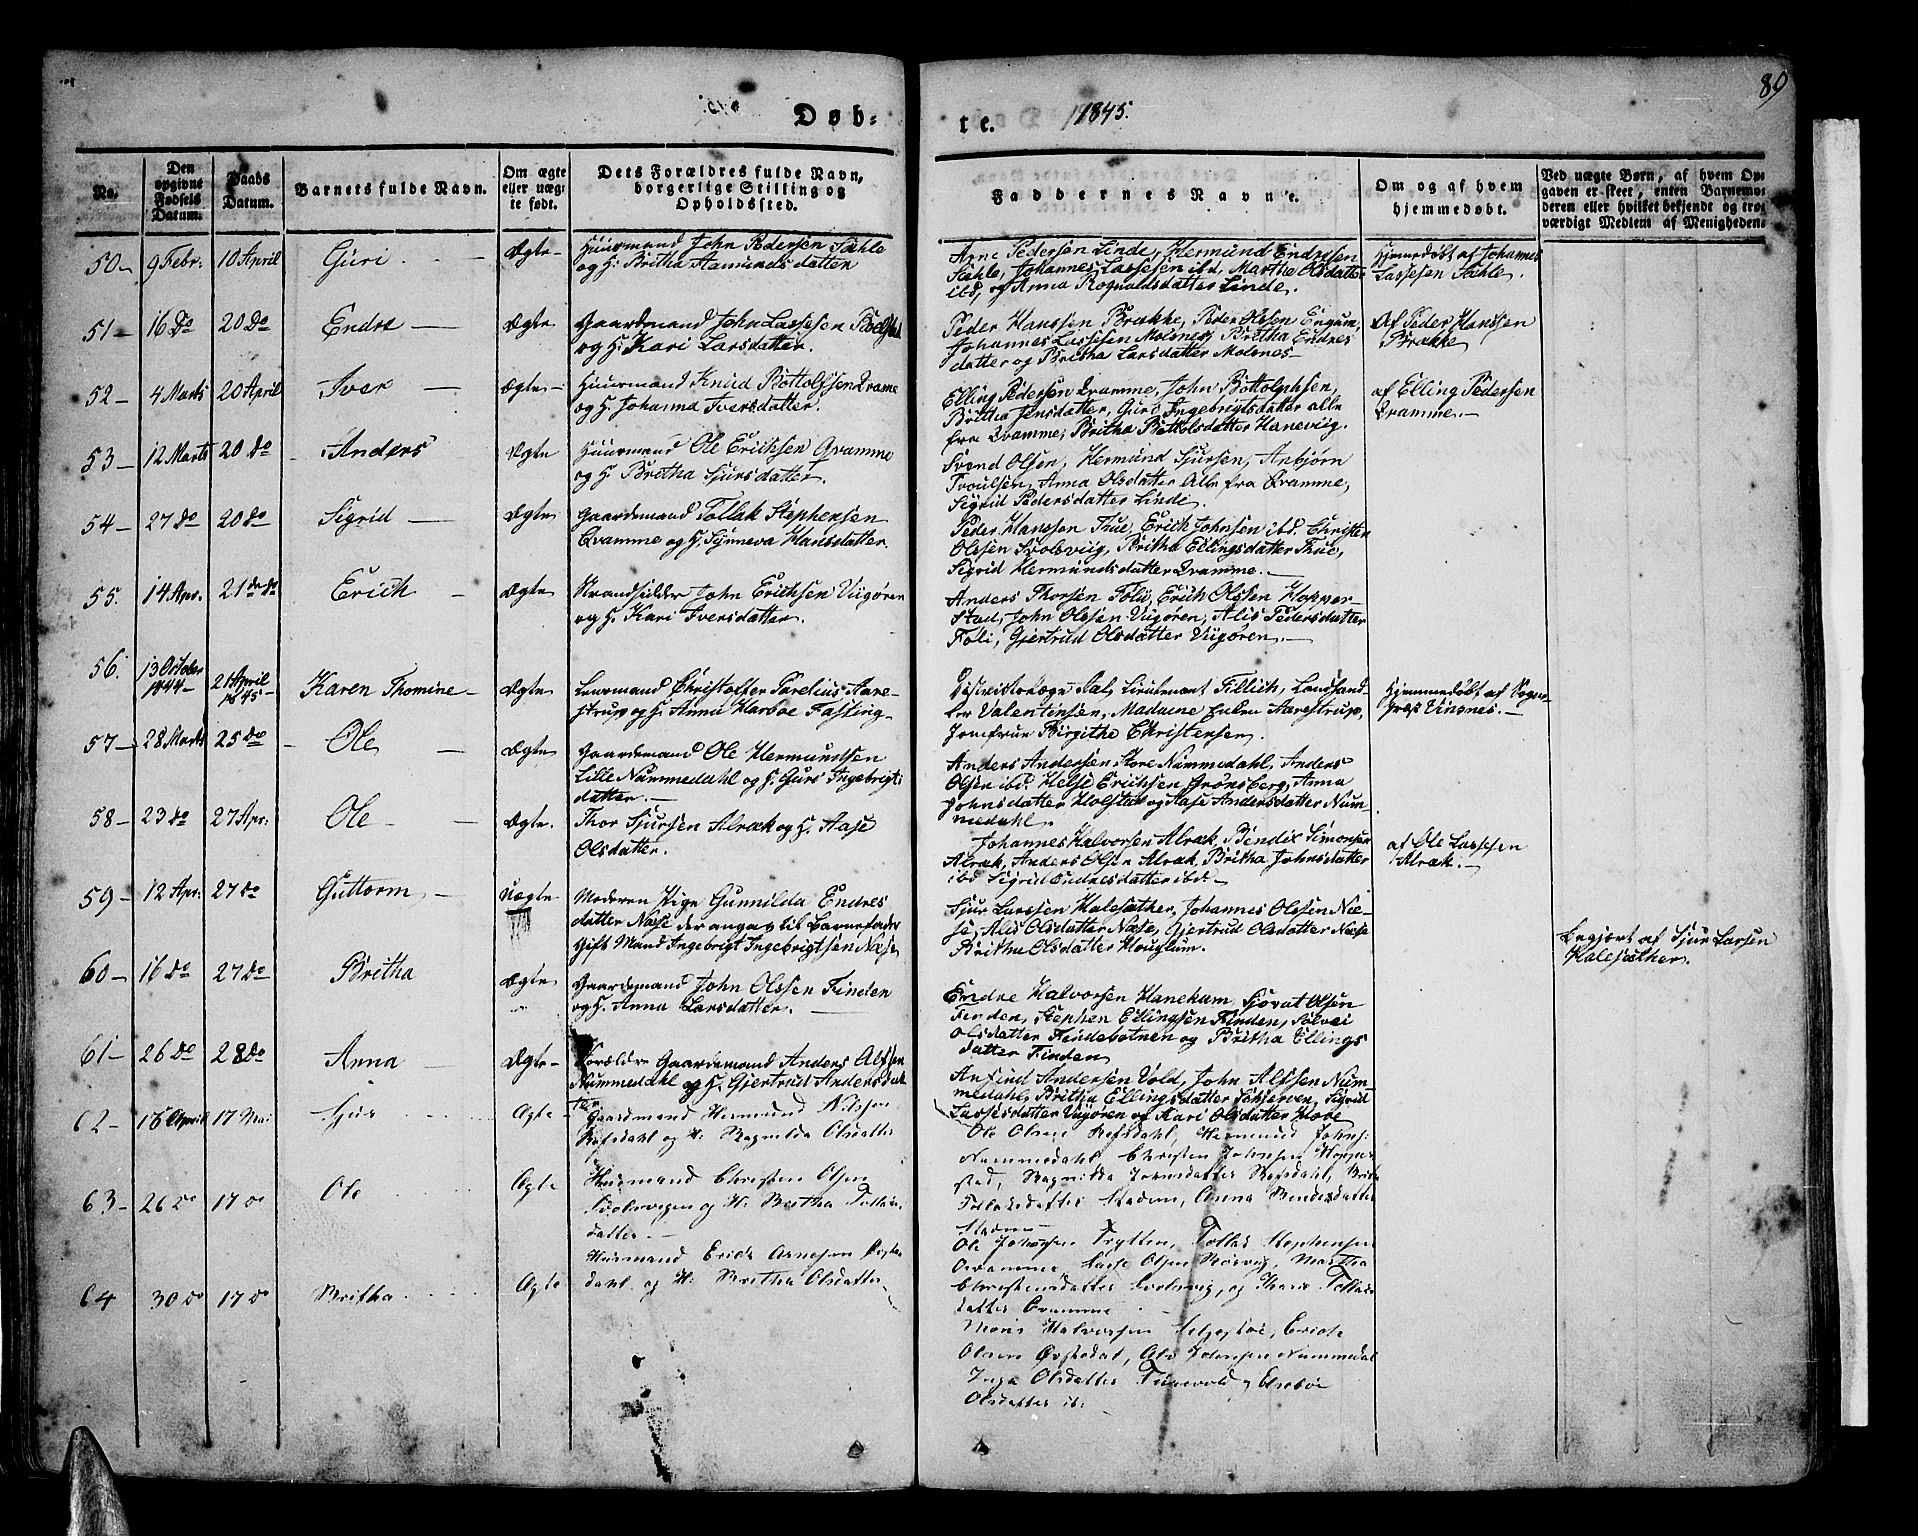 89
Døb-
te. 1845.
No.
Den
opgivne
Fødsels
Datum.
Daabs
Datum.
Barnets fulde Navn.
Om ægte
eller uæg-
te født.
Dets Forældres fulde Navn,
borgerlige Stilling og
Opholdssted.
Faddernes Navne.
Om og af hvem
hjemmedøbt.
Ved uægte Børn, af hvem Op-
gaven er skeet, enten Barnemo-
deren eller hvilket bekjendt og tro-
værdigt Medlem af Menigheden.
50 - 9 Febr: 10 April Guri - Ægte -
Huusmand John Pedersen Stæhle
og H. Britha Aamundsdatter
Arne Pedersen Linde, Hermund Endresen
Stæhle, Johannes Lassesen ibd, Marthe Olsdatter
ibd, og Anna Rognaldsdatter Linde.
Hjemedøbt af Johannes
Lassesen Stæhle.
51 - 16 Do 20 Do Endre - Ægte
Gaardmand John Lassesen
og H. Kari Larsdatter.
Peder Hanssen Brække, Peder Olsen Engum,
Johannes Lassesen Molsnes, Britha Endres
datter og Britha Larsdatter Molsnes -
Af Peder Hanssen
Brække
52 - 4 Marts 20 April Iver - Ægte -
Huusmand Knud Bottolfsen Qvamme
og H. Johanna Iversdatter.
Elling Pedersen Qvamme, John Bottolphsen,
Britha Jensdatter, Guri Ingebrigtsdatter alle
fra Qvamme, Britha Bottolsdatter Hanevig.
af Elling Pedersen
Qvamme. -
53 - 12 Marts 20 Do - Anders Ægte
Huusmand Ole Erichsen Qvamme
og H. Britha Sjursdatter.
Svend Olsen, Hermund Sjursen, Anbjørn
Anna Olsdatter Alle fra Qvamme,
Sigrid Pedersdatter Linde.
54 - 27 Do 20 Do Sigrid - Ægte
Gaardmand Tollak Stephensen
Qvamme og H. Synneva Hansdatter.
Peder Hanssen Thue, Erich Johnsen ibd. Christen
Olssen Svolsviig, Britha Ellingsdatter Thue,
Sigrid Hermundsdatter Qvamme. -
55. 14 Apr. 21 de do Erich - Ægte
Strandsidder John Erichsen Viigøren
og H. Kari Iversdatter.
Anders Thorsen Føli, Erich Olssen Hopper-
stad, John Olssen Viigøren, Alis Pedersdatter
Føli, Gjertrud Olsdatter Viigøren. -
56. 13 October
1844 - 21 April
1845 - Karen Thomine - Ægte
Lensmand Christoffer Parelius Aare-
strup og H. Anna Harboe Fasting -
Lieutenant Tillich, Landhand-
ler Valentinsen, Madame Enken Aarestrup,
Jomfrue Birgithe Christensen.
Hjemmedøbt af Sogne-
præst Vinsnes. -
57 - 28 Marts 25 Do - Ole - Ægte
Gaardmand Ole Hermundsen
Lille Nummedahl og H. Guri Ingebrigts
datter. -
Anders Andersen Store Nummedahl, Anders
Olsen ibd. Helje Erichsen Grønsberg, Anna
Johnsdatter Holstad og Aase Andersdatter Num-
medahl.
58 - 23 Do 27 Apr: Ole - Ægte.
Thor Sjursen Alræk og H. Aase
Olsdatter.
Johannes Halvorsen Alræk, Bendix Simonsen
Alræk, Anders Olsen Alræk, Britha Johnsdatter
ibd Sigrid Endresdatter ibd -
af Ole Lassesen
Alræk. -
59 - 12 Apr: 27 do Guttorm - Uægte
Moderen Pige Gunnilda Endres
datter Næse der angav til Barnefader
Gift Mand Ingebrigt Ingebrigtsen Næse
Sjur Larssen Halesæther, Johannes Olssen Næ-
se, Alis Olsdatter Næse, Gjertrud Olsdatter Næse
Britha Olsdatter Houglum.
Begjært af Sjur Larsen
Halesæther.
60 - 16 Do 27 Do Britha Ægte
Gaardmand John Olssen Finden
og H. Anna Larsdatter. -
Endre Halvorsen Hanekam, Sjovat Olsen
Finden, Stephen Ellingsen Finden, Sølvei
Olsdatter Findebotnen og Britha Ellings
datter Finden
61 - 26 Do 28 Do Anna - Ægte -
Forældre Gaardmand Anders Alfsen
Nummedahl og H. Gjertrud Andersdat
ter
Anfind Andersen Vold, John Alfsen Num-
medahl, Britha Ellingsdatter Sigrid
Lassesdatter Viigøren og Kari Olsdatter Hove
62 - 16 April 17 Mai Sjur Ægte
Gaardmand Hermund Nilssen
Refsdahl og H. Ragnilda Olsdatter
Ole Olsen Refsdahl, Hermund Johns:
Nummedahl Christen Johnsen Hopper
stad, Ragnilda Johnsdatter Refsdahl, Brita
Tollaksdatter Stadem, Anna Bendixsdatter
Stadem -
63 - 26 Do 17 Do Ole Ægte
Husmand Christen Olsen
Svolsvigen og H. Bertha Tollaks
datter. -
Ole Johnsen Trytten, Tollak Stephensen
Qvamme Lasse Olsen Martha
Christensdatter Svolsvig, og Tollaks
datter Qvamme
64 30 Do 17 Do Britha Ægte
Husmand Erick Arnesen
dahl og H. Britha Olsdatter
Mons Halvorsen Erick
Olsen Øvstedal, Alv Johnsen Nummedal
Inga Olsdatter og
Olsdatter ib: